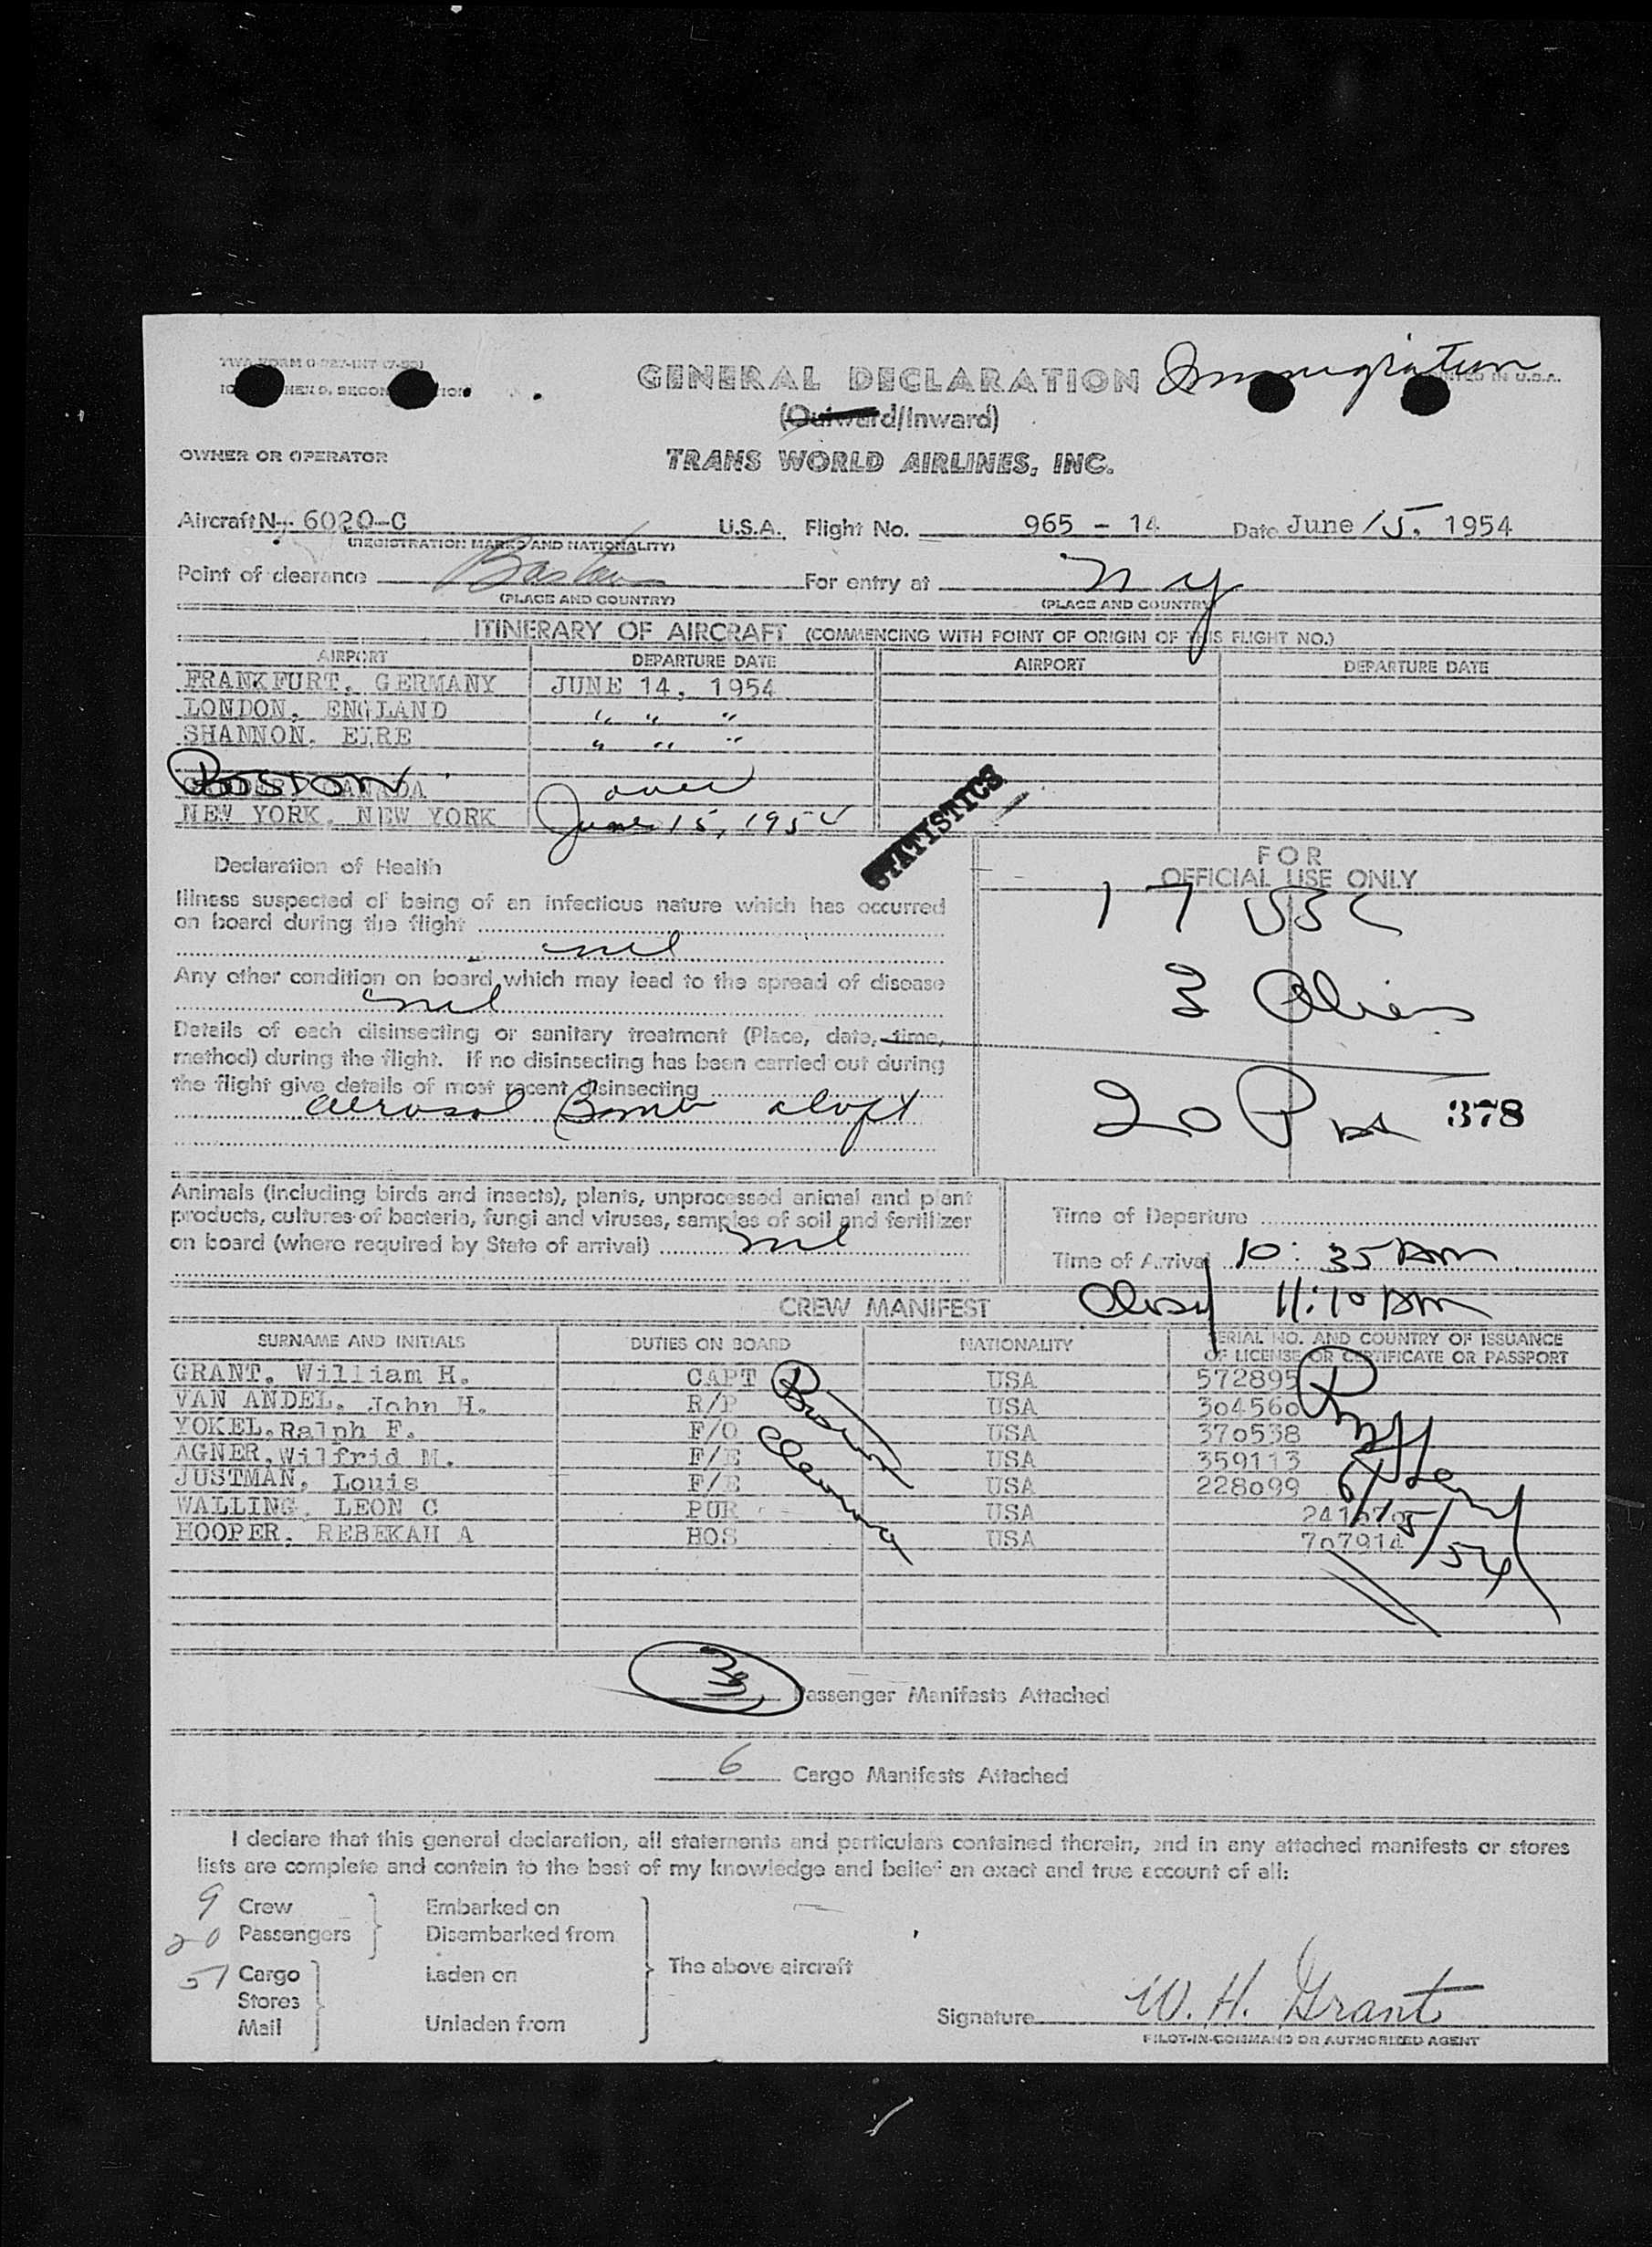 TWA FORM O-927-INT (7-53)
GENERAL DECLARATION Immigration
PRINTED IN U.S.A.
(Outward/Inward)
OWNER OR OPERATOR TRANS WORLD AIRLINES, INC.
Aircraft N- 6020-C U.S.A. Flight No. 965 - 14 Date June 15, 1954
(REGISTRATION MARKS AND NATIONALITY)
Point of clearance Boston For entry at N Y
(PLACE AND COUNTRY) (PLACE AND COUNTRY)
ITINERARY OF AIRCRAFT (COMMENCING WITH POINT OF ORIGIN OF THIS FLIGHT NO.)
AIRPORT DEPARTURE DATE AIRPORT DEPARTURE DATE
FRANKFURT, GERMANY JUNE 14, 1954
LONDON, ENGLAND " " "
SHANNON, EIRE " " "
BOSTON CANADA over
NEW YORK, NEW YORK June 15, 1954
STATISTICS
Declaration of Health
Illness suspected of being of an infectious nature which has occurred
on board during the flight
nil
Any other condition on board which may lead to the spread of disease
nil
Details of each disinsecting or sanitary treatment (Place, date, time,
method) during the flight. If no disinsecting has been carried out during
the flight give details of most recent disinsecting
Aerosol Bomb aloft
FOR
OFFICIAL USE ONLY
17 USC
3 Aliens
20 Pax 378
Animals (including birds and insects), plants, unprocessed animal and plant
products, cultures of bacteria, fungi and viruses, samples of soil and fertilizer
on board (where required by State of arrival) nil
Time of Departure
Time of Arrival 10:35 AM
11:10 AM
CREW MANIFEST
SURNAME AND INITIALS DUTIES ON BOARD NATIONALITY SERIAL NO. AND COUNTRY OF ISSUANCE
OF LICENSE OR CERTIFICATE OR PASSPORT
GRANT, William H. CAPT USA 572895
VAN ANDEL, John H. R/P USA 304560
YOKEL, Ralph F. F/O USA 370538
AGNER, Wilfrid M. F/E USA 359113
JUSTMAN, Louis F/E USA 228099
WALLING, LEON C PUR USA
HOOPER, REBEKAH A HOS USA 707914
Boston
Clearing
6/15/54
3 Passenger Manifests Attached
6 Cargo Manifests Attached
I declare that this general declaration, all statements and particulars contained therein, and in any attached manifests or stores
lists are complete and contain to the best of my knowledge and belief an exact and true account of all:
9 Crew Embarked on
20 Passengers Disembarked from
The above aircraft
57 Cargo Laden on
Stores
Mail Unladen from
Signature W. H. Grant
PILOT-IN-COMMAND OR AUTHORIZED AGENT